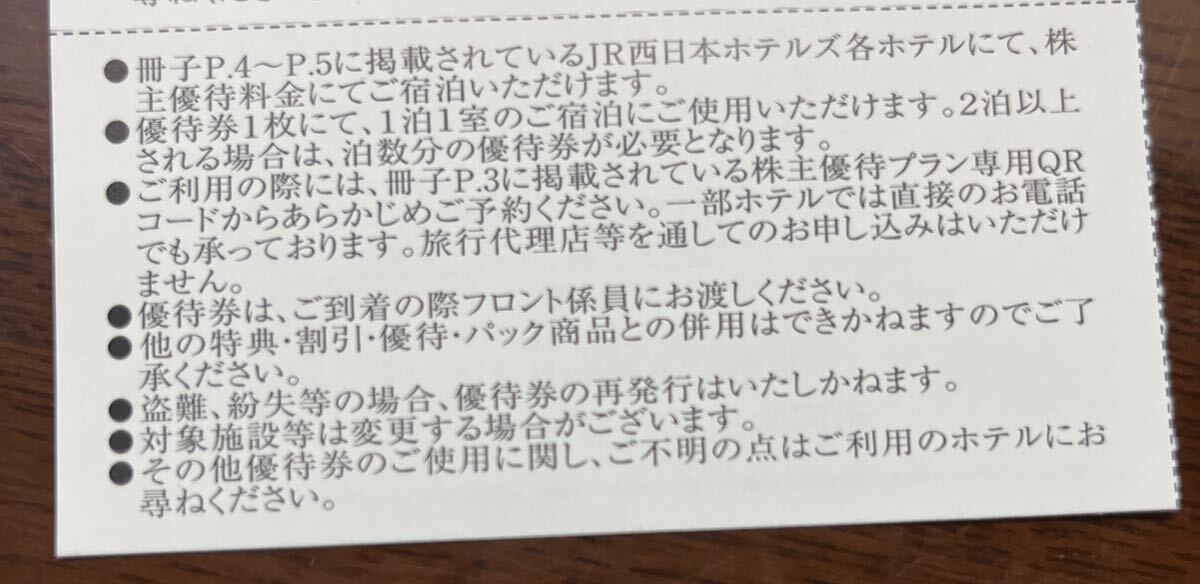 尋ねください。
●冊子P.4～P.5に掲載されているJR西日本ホテルズ各ホテルにて、株
主優待料金にてご宿泊いただけます。
●優待券1枚にて、1泊1室のご宿泊にご使用いただけます。2泊以上
される場合は、泊数分の優待券が必要となります。
●ご利用の際には、冊子P.3に掲載されている株主優待プラン専用QR
コードからあらかじめご予約ください。一部ホテルでは直接のお電話
でも承っております。旅行代理店等を通してのお申し込みはいただけ
ません。
●優待券は、ご到着の際フロント係員にお渡しください。
●他の特典・割引・優待・パック商品との併用はできかねますのでご了
承ください。
●盗難、紛失等の場合、優待券の再発行はいたしかねます。
●対象施設等は変更する場合がございます。
●その他優待券のご使用に関し、ご不明の点はご利用のホテルにお
尋ねください。